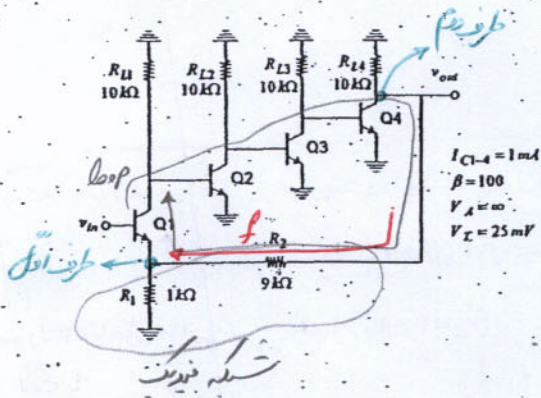 R_L1
10 kΩ
R_L2
10 kΩ
R_L3
10 kΩ
R_L4
10 kΩ
طرف دوم
v_out
Q4
Q3
Q2
Q1
loop
v_in
I_C1-4 = 1 mA
β = 100
V_A = ∞
V_T = 25 mV
f
R_2
9 kΩ
طرف اول
R_1
1 kΩ
شبکه فیدبک